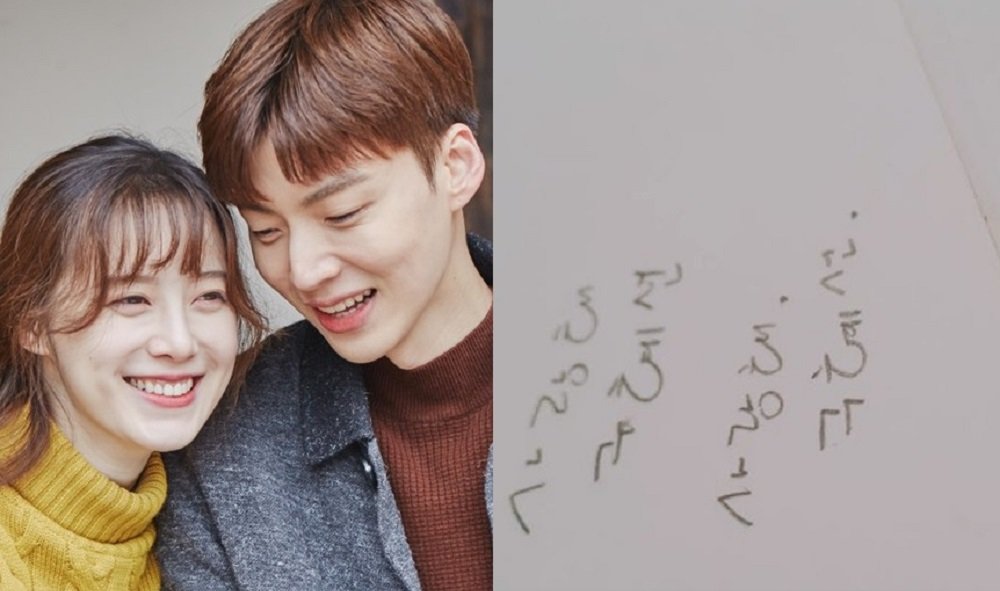 사랑해
구혜선
사랑해.
구혜선.